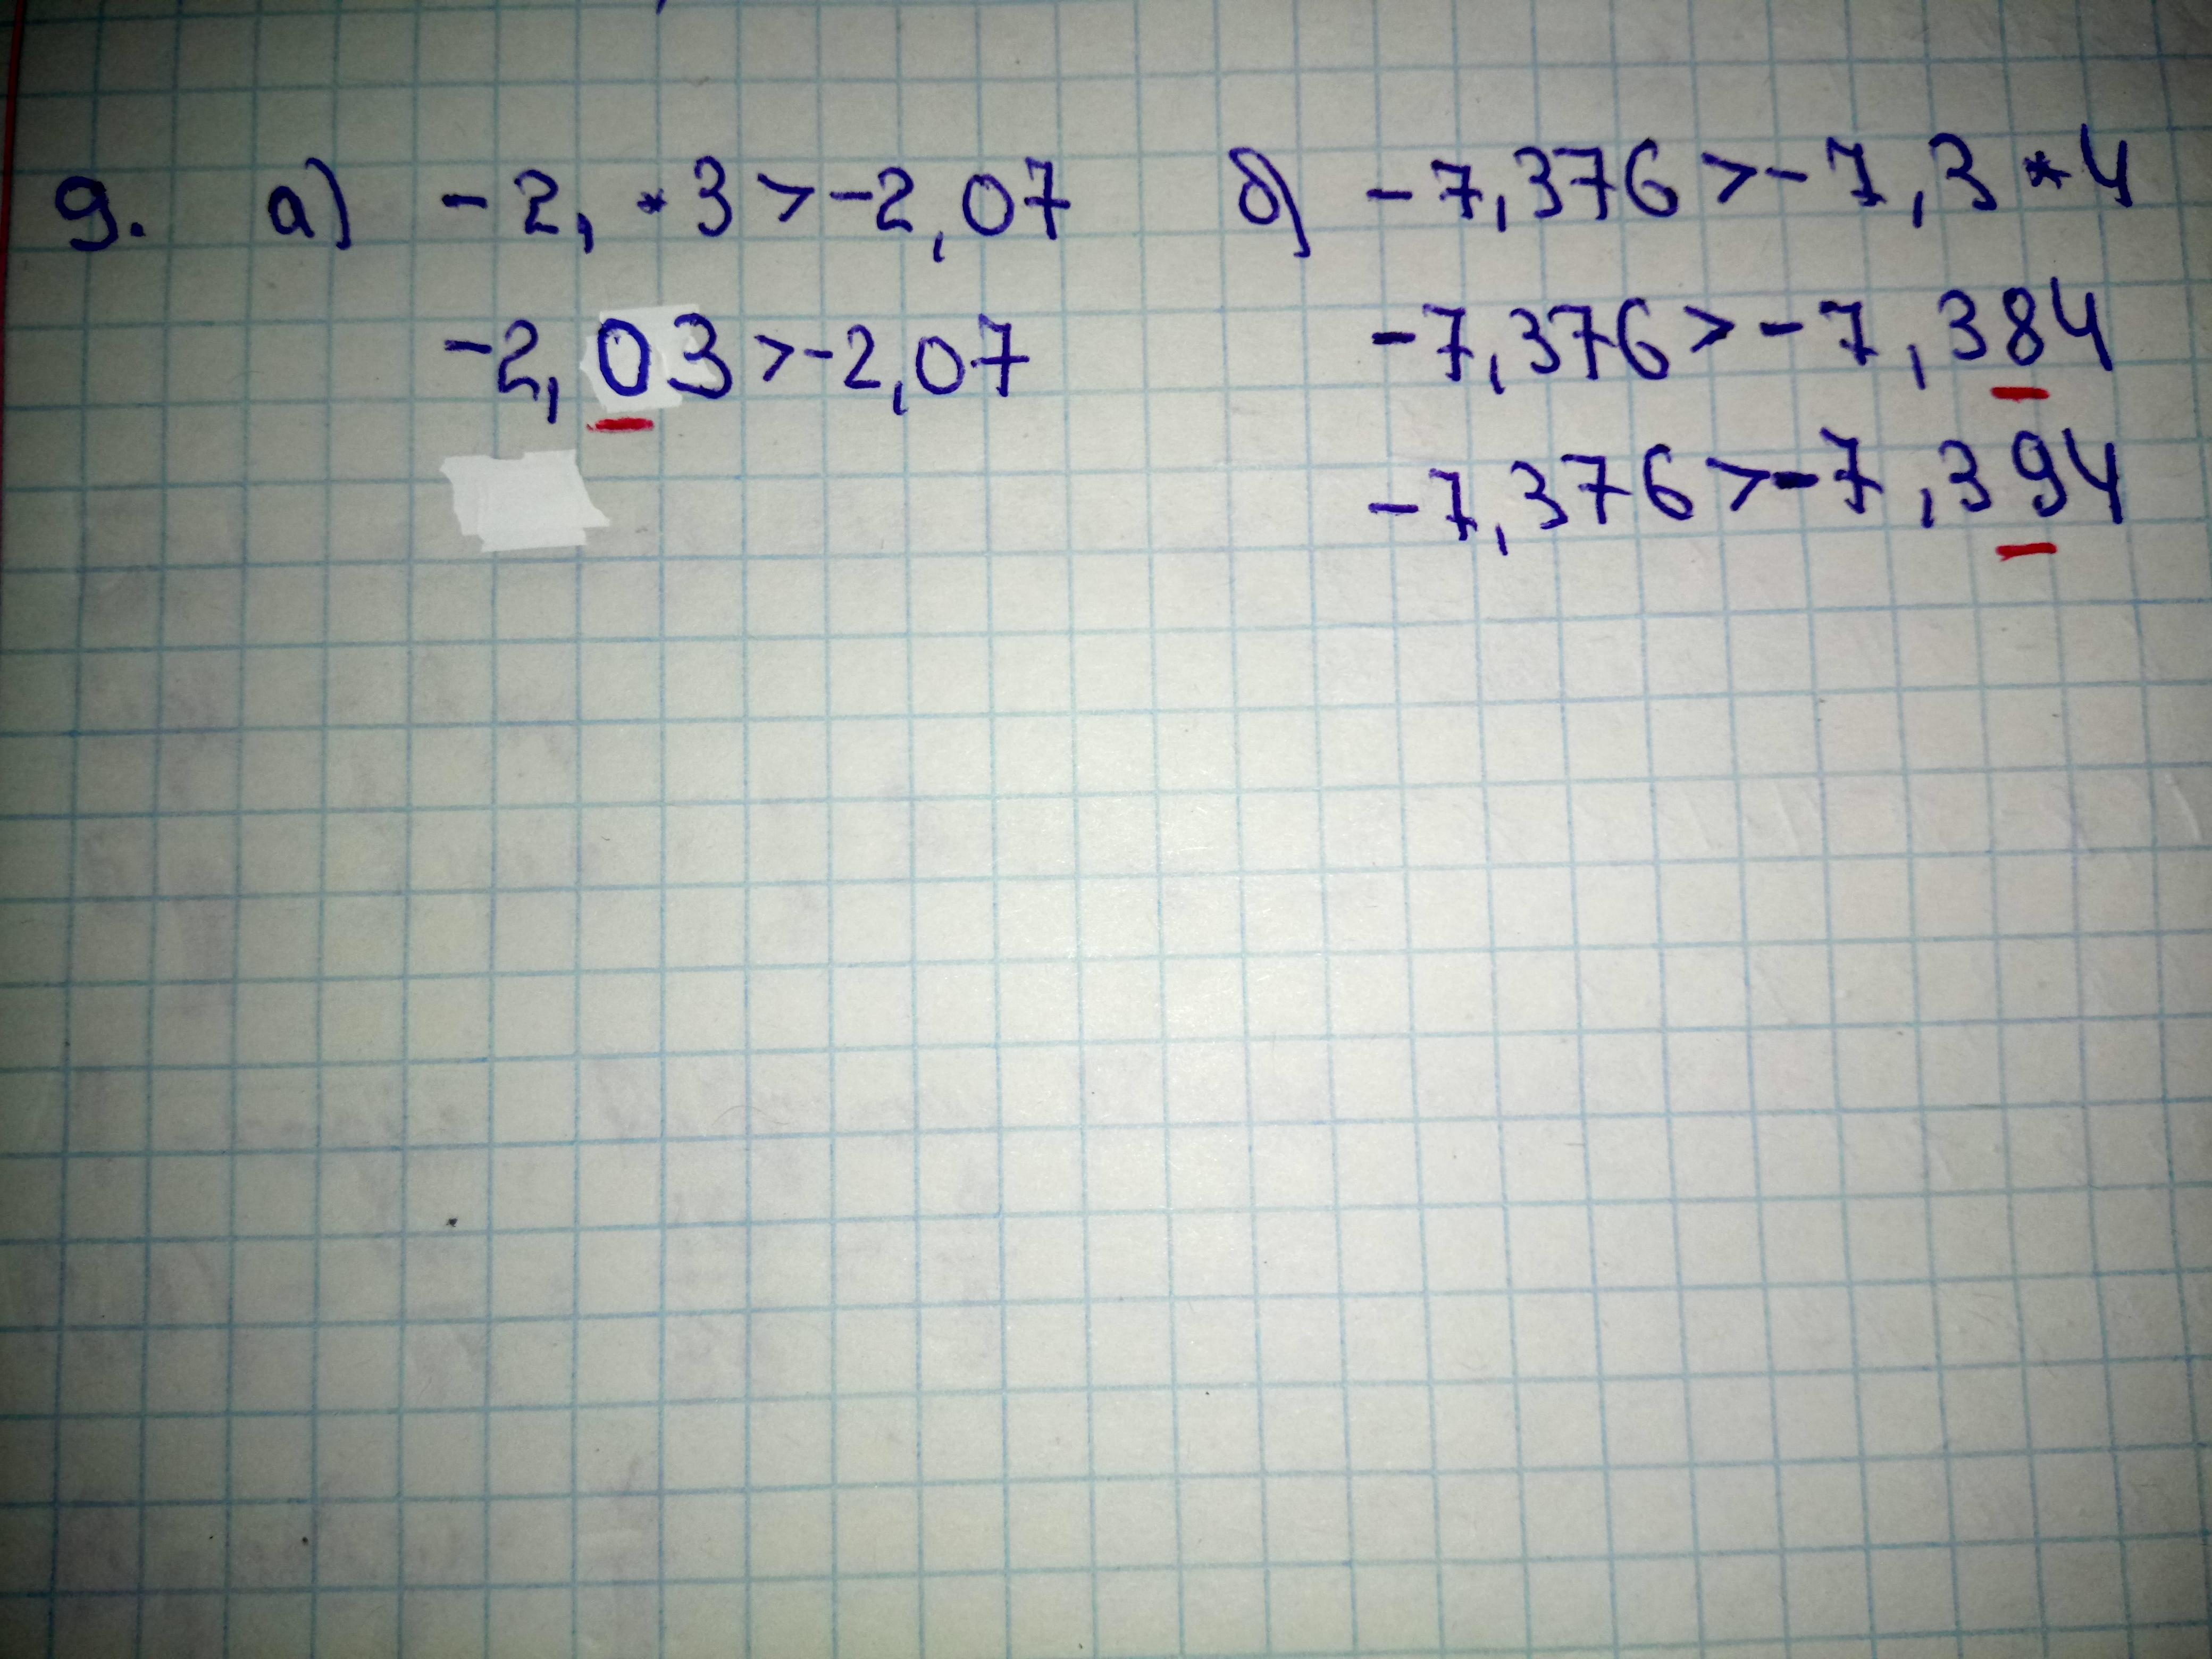 9. а) -2,*3>-2,07 б) -7,376>-7,3*4
-2,03>-2,07 -7,376>-7,384
-7,376>-7,394